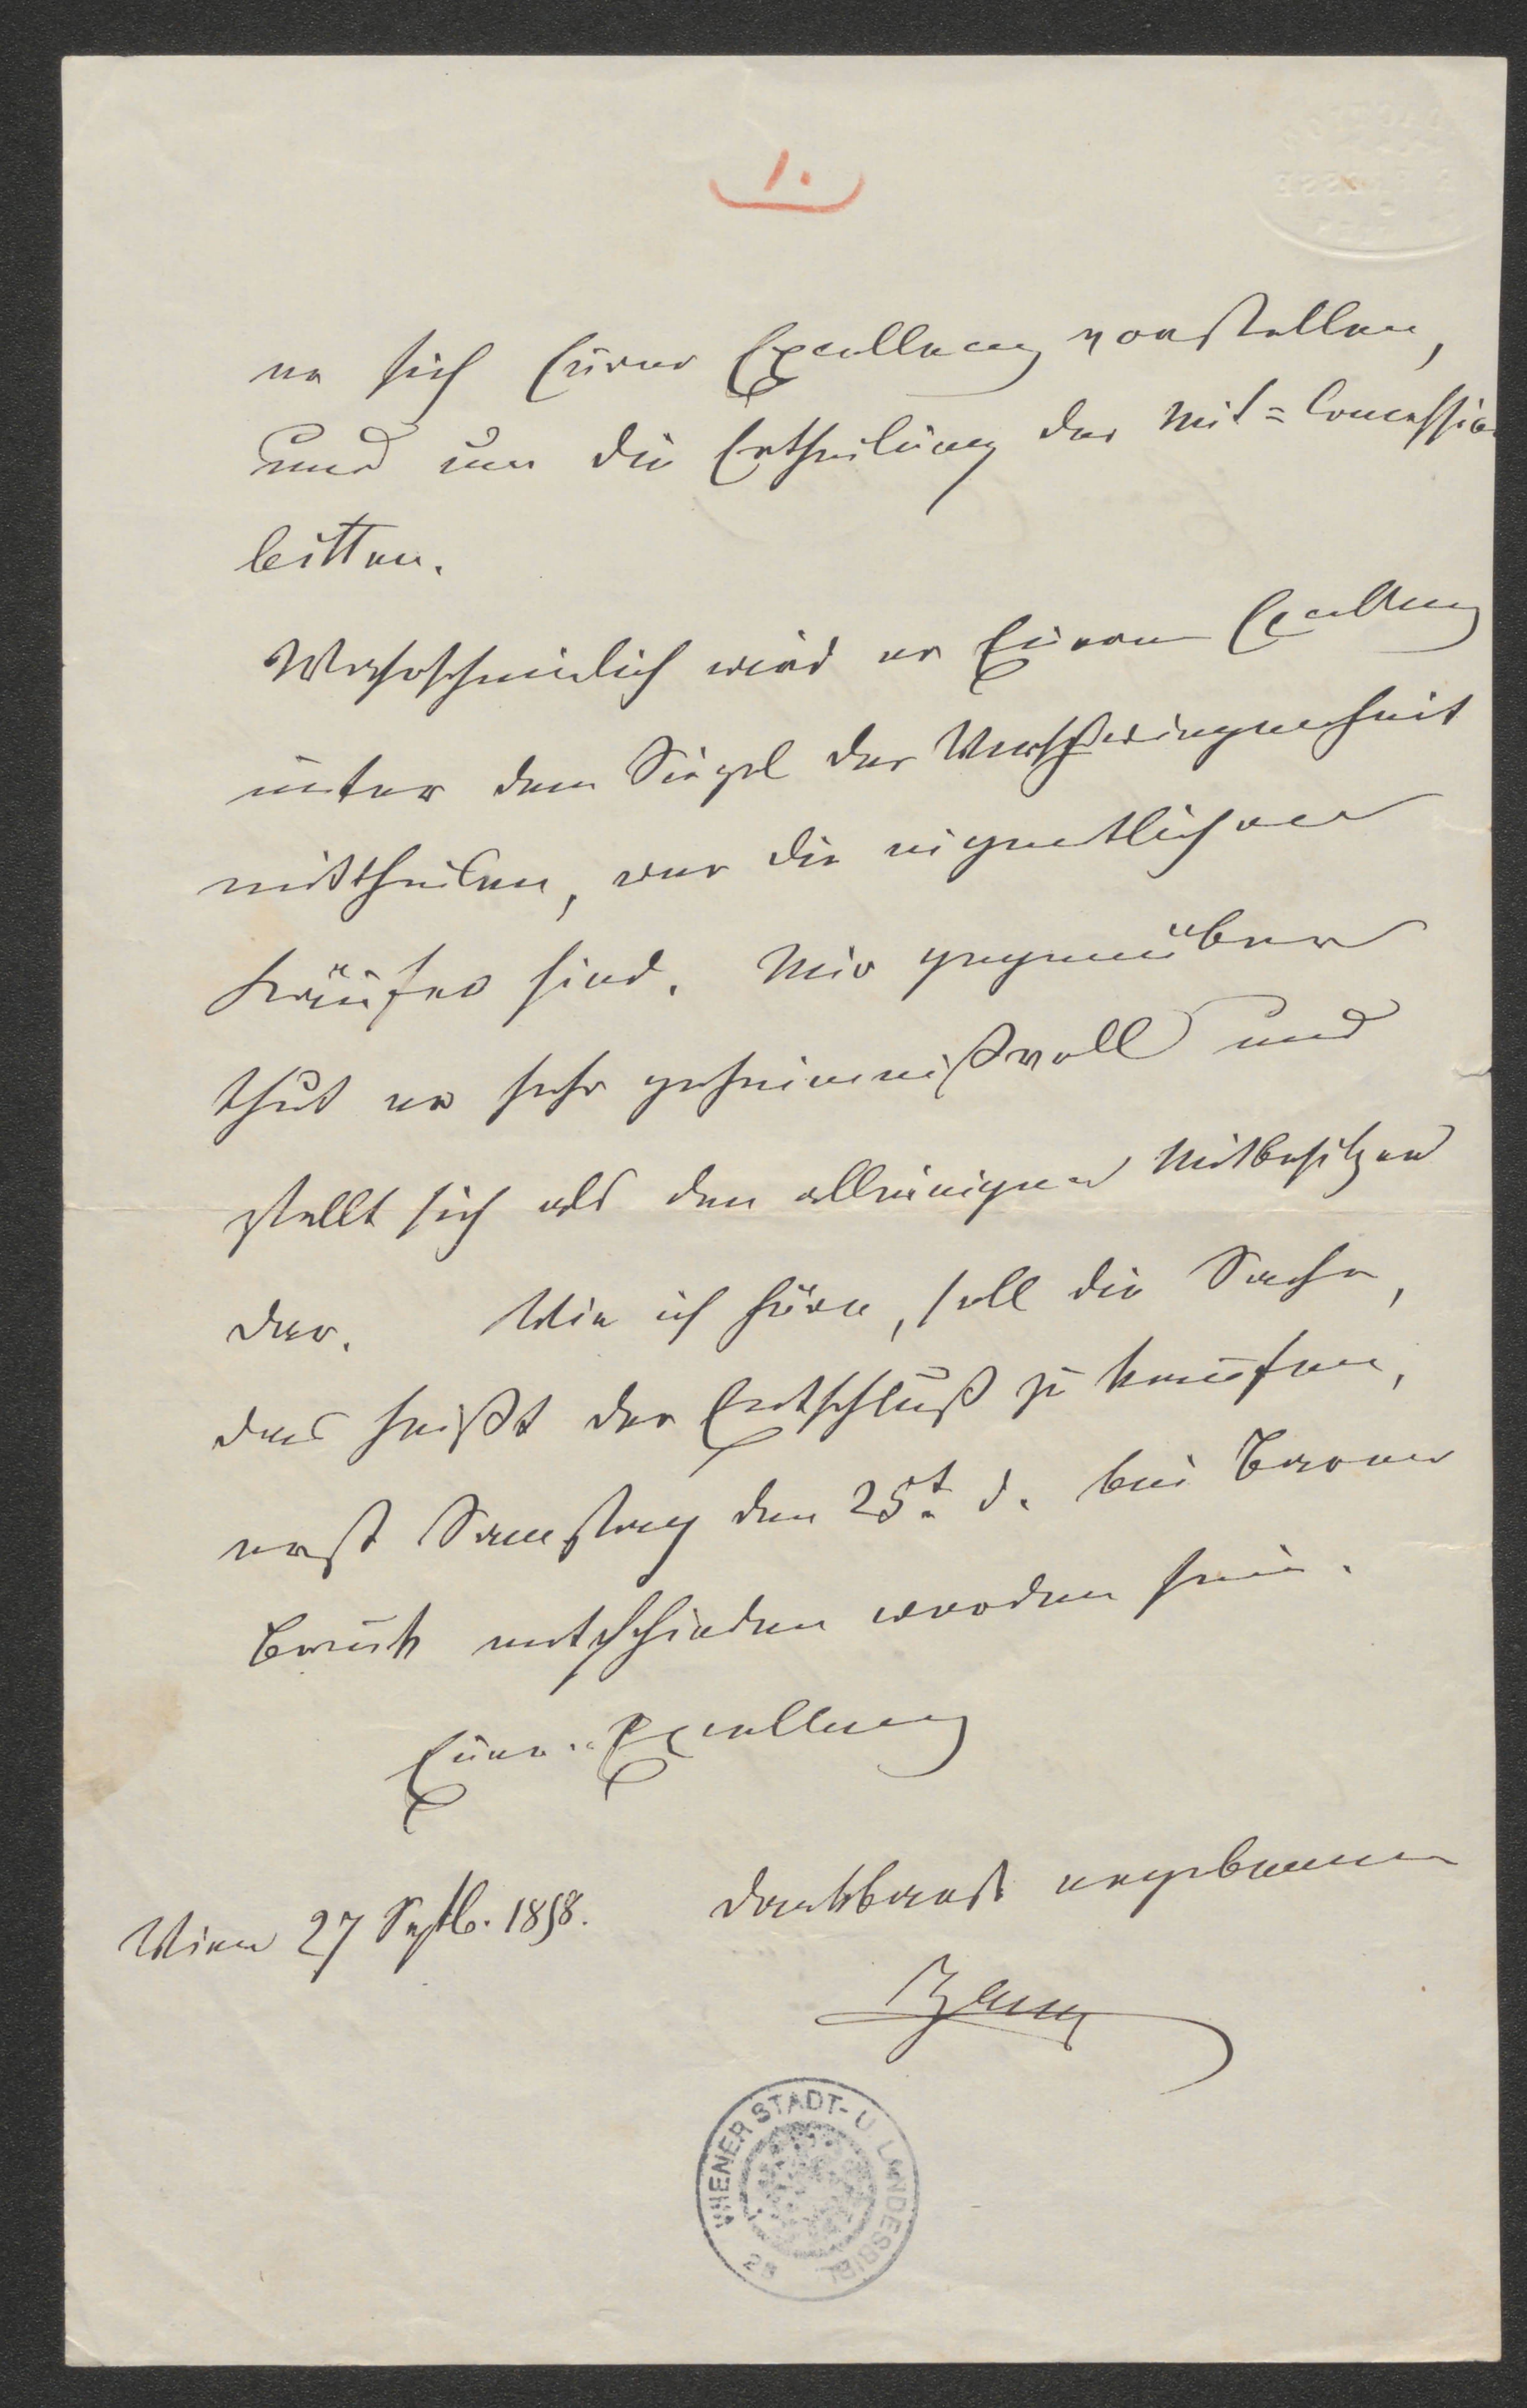 1.
er sich Eurer Excellenz vorstellen,
und um die Ertheilung der Mit=Concession
bitten.
Wahrscheinlich wird er Eurer Excellenz
unter dem Siegel der Verschwiegenheit
mittheilen, wer die eigentlichen
Käufer sind. Mir gegenüber
thut er sehr geheimnißvoll und
stellt sich als den alleinigen Mitbesitzer
dar. Wie ich höre, soll die Sache,
das heißt der Entschluß zu kaufen,
erst Samstag den 25t. d. bei Baron
Bruck entschieden worden sein.
Euer Excellenz
dankbarst ergebener
Wien 27 Septb. 1858.
Zang
WIENER STADT- U. LANDESBIBL.